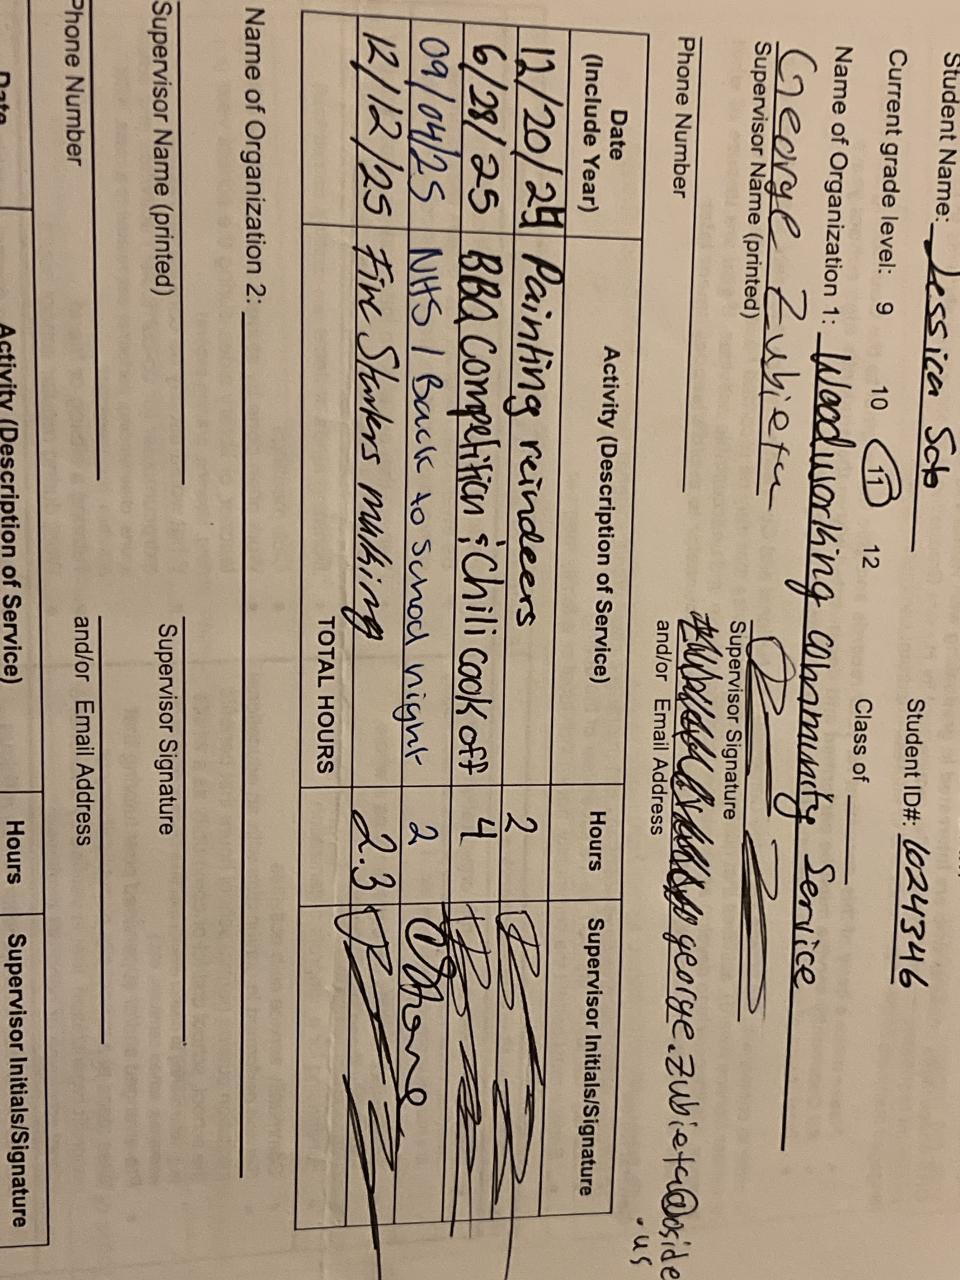 Student Name: Jessica Soto
Student ID#: 1024346
Current grade level: 9 10 11 12 Class of
Name of Organization 1: Woodworking community Service
George Zubieta
Supervisor Name (printed) Supervisor Signature
george.zubieta@oside.us
Phone Number and/or Email Address
Date (Include Year) Activity (Description of Service) Hours Supervisor Initials/Signature
12/20/24 Painting reindeers 2
6/28/25 BBQ Competition & Chili cook off 4
09/04/25 NHS / Back to School night 2
12/12/25 Fire Starters making 2.3
TOTAL HOURS
Name of Organization 2:
Supervisor Name (printed) Supervisor Signature
Phone Number and/or Email Address
Date Activity (Description of Service) Hours Supervisor Initials/Signature